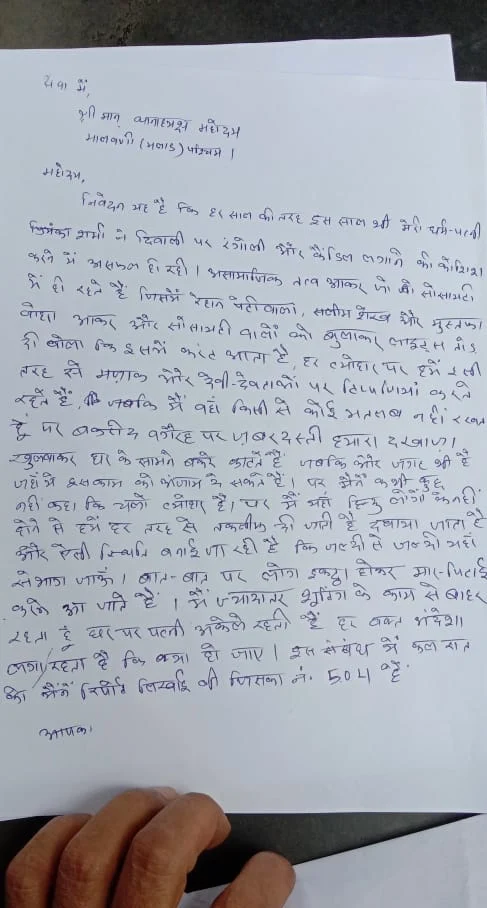 सेवा में,
श्री मान् थानाध्यक्ष महोदय
मालवणी (मलाड) पश्चिम ।
महोदय,
निवेदन यह है कि हर साल की तरह इस साल भी मेरी धर्म-पत्नी
शर्मा ने दिवाली पर रंगोली और कैंडिल लगाने की कोशिश
करने में असफल हो रही । असामाजिक तत्व आकर जो सोसायटी
में ही रहते हैं जिसमें रेहान सलीम शेख और मुस्तफा
आकर और सोसायटी वालों को बुलाकर लाइट्स तोड़
दी बोला कि इसमें करंट आता है, हर त्योहार पर हमें इसी
तरह से मजाक और देवी-देवताओं पर टिप्पणियां करते
रहते हैं, जबकि मैं वहाँ किसी से कोई मतलब नहीं रखता
हूँ पर बकरीद वगैरह पर जबरदस्ती हमारा दरवाजा
खुलवाकर घर के सामने बकरे काटते हैं जबकि और जगह भी है
जहाँ वे इस काम को अंजाम दे सकते हैं। पर मैंने कभी कुछ
नहीं कहा कि चलो त्योहार है। पर में यहाँ हिन्दू लोगों के नहीं
होने से हमें हर तरह से तकलीफ दी जाती है दबाया जाता है
और ऐसी स्थिति बनाई जा रही है कि जल्दी से जल्दी यहाँ
से भाग जाऊँ । बात-बात पर लोग इकट्ठा होकर मार-पिटाई
करने आ जाते हैं । मैं ज्यादातर शूटिंग के काम से बाहर
रहता हूँ घर पर पत्नी अकेले रहती हैं हर वक्त अंदेशा
लगा रहता है कि क्या हो जाए । इस संबंध में कल रात
को मैंने रिपोर्ट लिखाई थी जिसका नं. 504 है
आपका